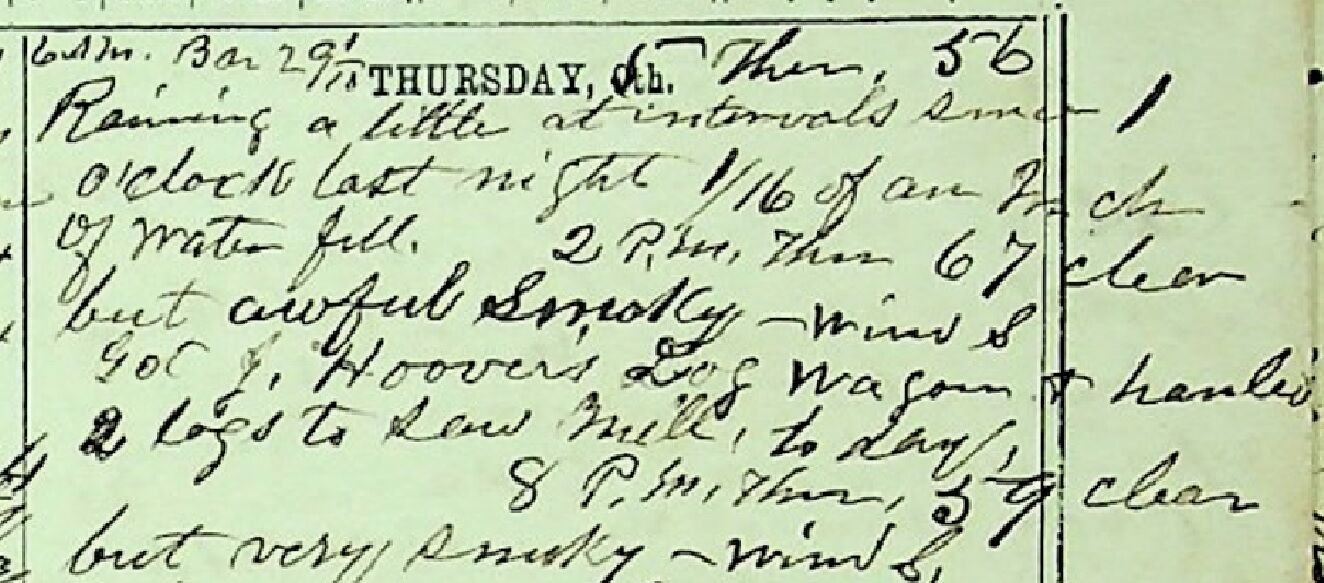 6 A.m. Bar 29 1/10 THURSDAY, 5th. Ther, 56
Raining a little at intervals since 1
o'clock last night 1/16 of an Inch
of Water fell. 2 P.m. Ther 67 clear
but awful Smoky - wind S
Got J. Hoover's Log Wagon & hauled
2 logs to saw mill, to day,
8 P.m. Ther, 59 clear
but very smoky - wind S,